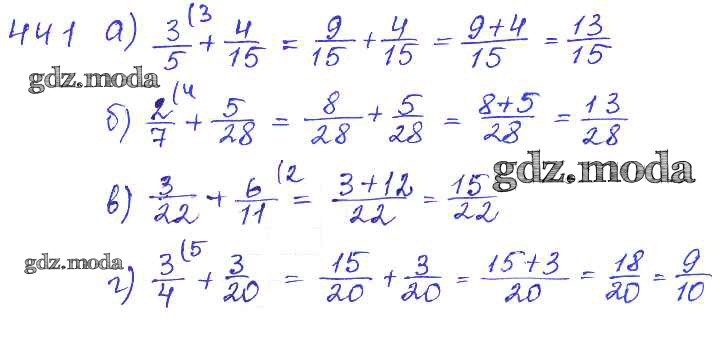 441 а) 3/5 (3 + 4/15 = 9/15 + 4/15 = 9+4/15 = 13/15
gdz.moda
б) 2/7 (4 + 5/28 = 8/28 + 5/28 = 8+5/28 = 13/28
gdz.moda
в) 3/22 + 6/11 (2 = 3+12/22 = 15/22
gdz.moda
г) 3/4 (5 + 3/20 = 15/20 + 3/20 = 15+3/20 = 18/20 = 9/10